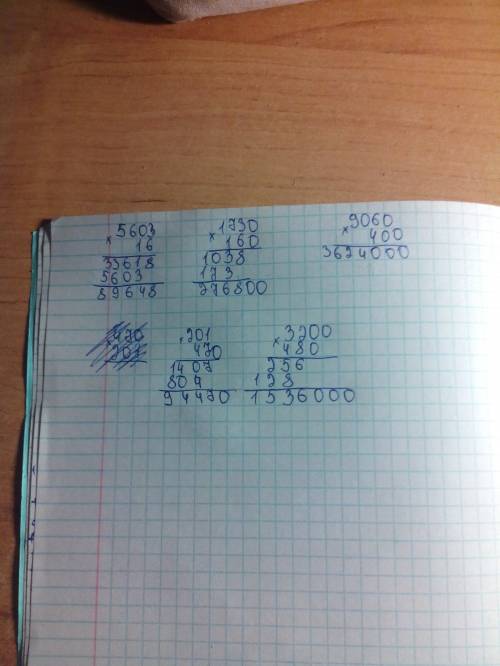 5603
× 16
33618
5603
89648
1730
× 160
1038
173
276800
9060
× 400
3624000
201
× 470
1407
804
94470
3200
× 480
256
128
1536000